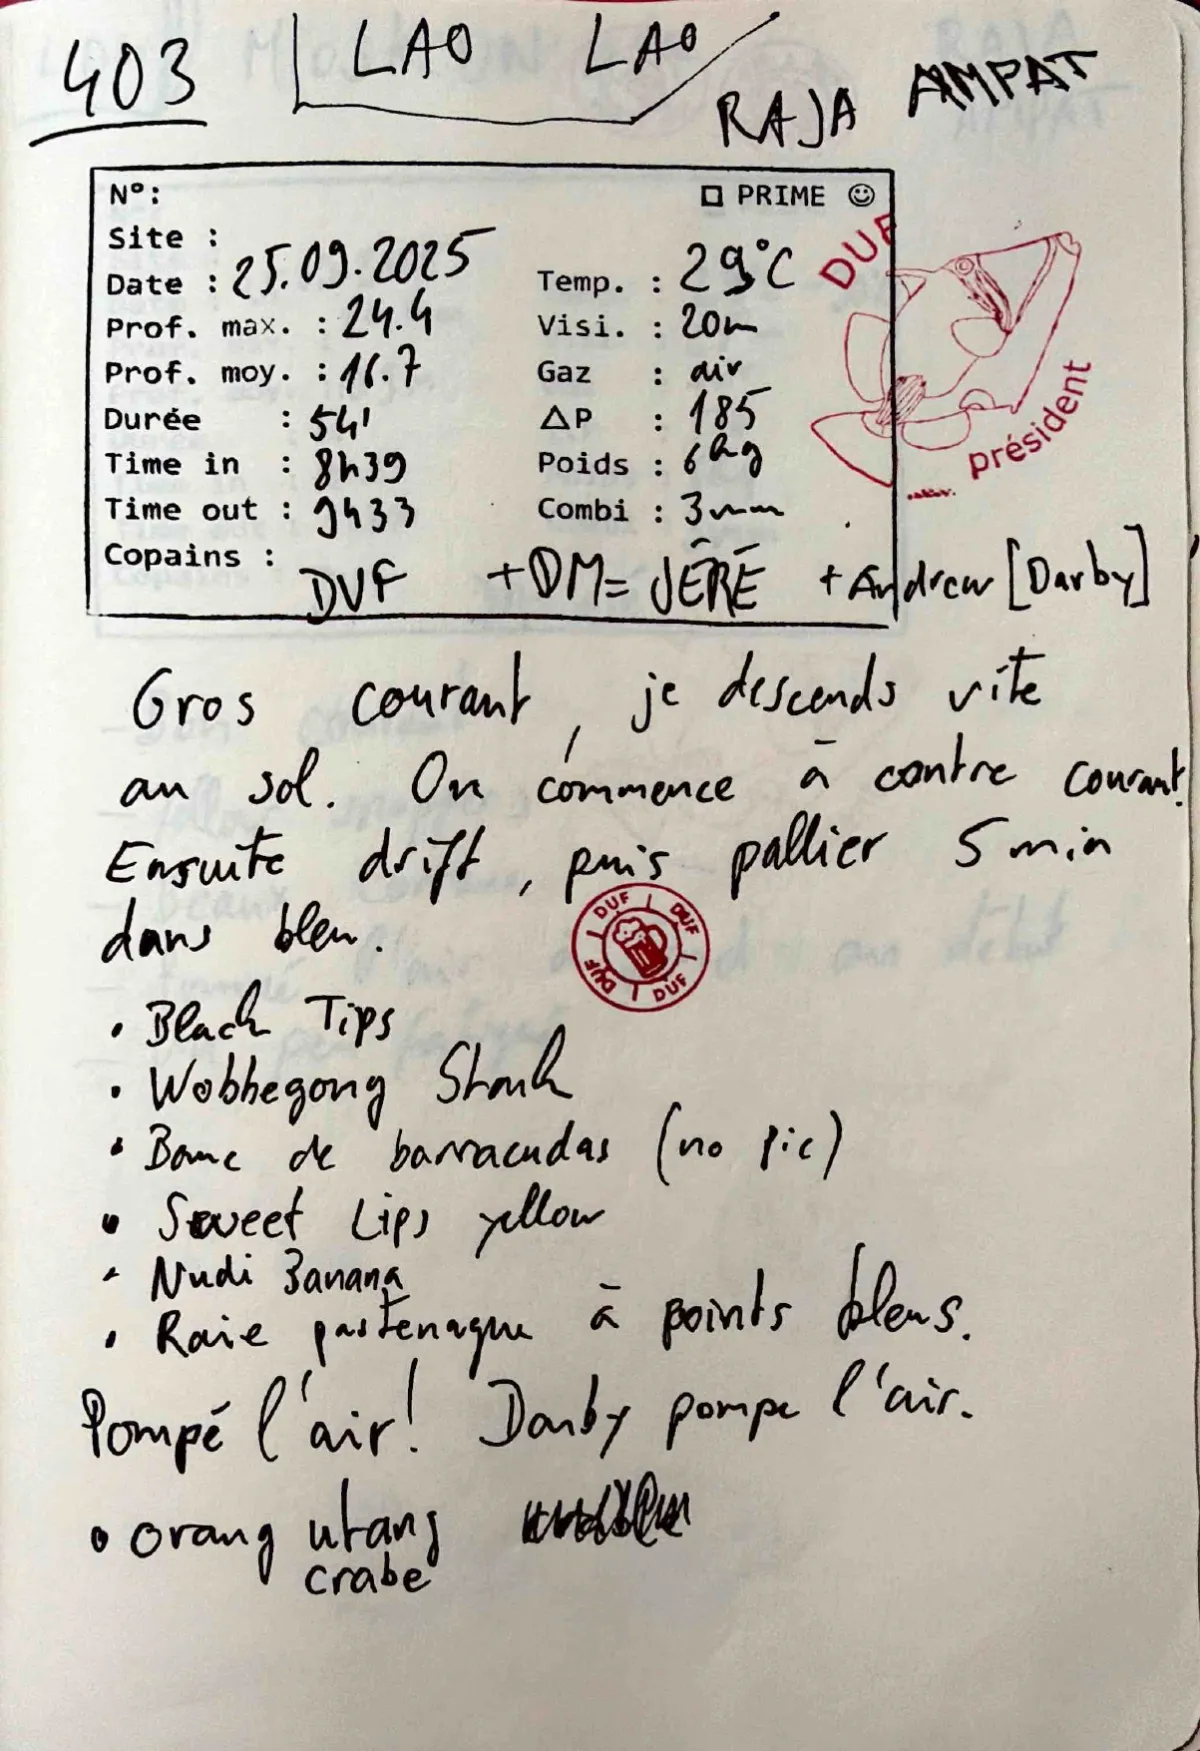 403 LAO LAO
RAJA AMPAT
N°: □ PRIME ☺
Site :
Date : 25.09.2025
Temp. : 29°C
Prof. max. : 24.4
Visi. : 20m
Prof. moy. : 16.7
Gaz : air
Durée : 54'
ΔP : 185
Time in : 8h39
Poids : 6kg
Time out : 9h33
Combi : 3mm
Copains : DUF +DM= JÉRÉ + Andrew [Darby]
DUF
président
Gros courant, je descends vite
au sol. On commence à contre courant.
Ensuite drift, puis pallier 5 min
dans bleu.
DUF DUF DUF DUF
• Black Tips
• Wobbegong Shark
• Banc de barracudas (no pic)
• Sweet Lips yellow
• Nudi Banana
• Raie pastenague à points bleus.
Pompé l'air! Darby pompe l'air.
• orang utang
crabe